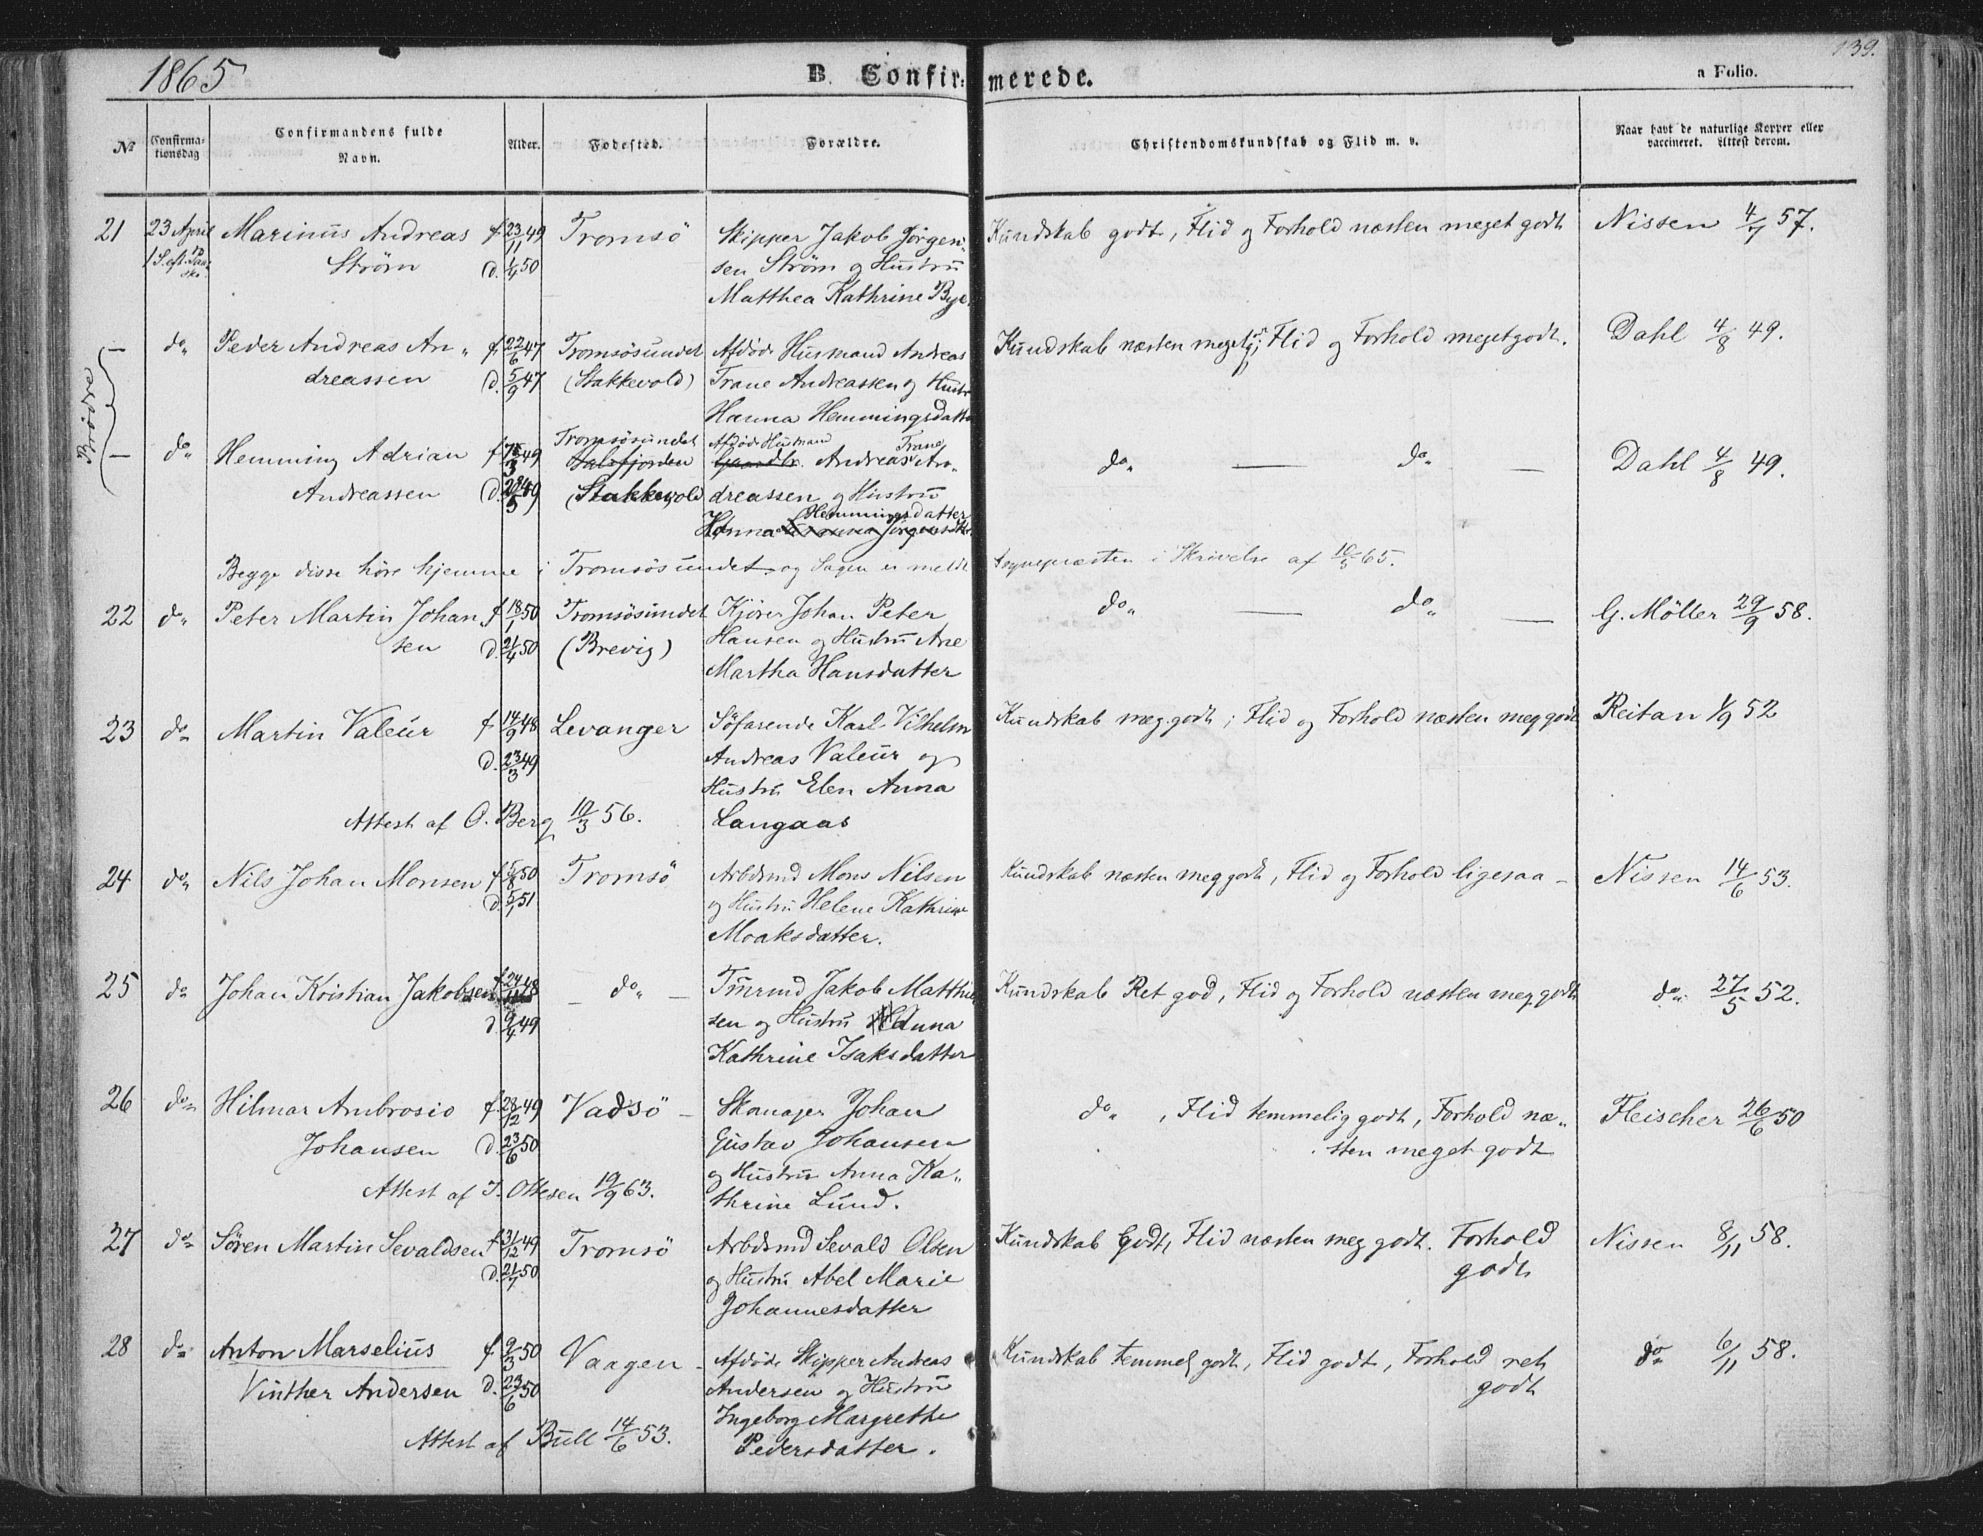 1865
B. Confirmerede.
a Folio.
139.
No
Confirmationsdag
Confirmandens fulde Navn.
Alder.
Fødested.
Forældre.
Christendomskundskab og Flid m. v.
Naar havt de naturlige Kopper eller vaccineret. Attest derom.
21 23 April Marinus Andreas f. 23/11 49 Tromsö Skipper Jakob Jörgen- Kundskab godt, Flid og Forhold næsten meget godt Nissen 4/7 57.
1 S. eft. Paaske Ström d. 1/4 50 sen Ström og Hustru
Matthea Kathrine Bye
Brödre
— do Peder Andreas An- f. 22/6 47 Tromsösundet Afdöde Husmand Andreas Kundskab næsten meget g; Flid og Forhold meget godt. Dahl 4/8 49.
dreassen d. 5/9 47 (Stakkevold) Trane Andreassen og Hustr
Hanna Hemmingsdatter
— do Hemming Adrian f. 3 49 Tromsösundet Afdöde Husmand Andreas Trane An- do — do — Dahl 4/8 49.
Andreassen d. 49 (Stakkevold dreassen og Hustru
Hanna Hemmingsdatter
Begge disse höre hjemme i Tromsösundet og Sagen er meldt Sognepræsten i Skrivelse af 10/5 65.
22 do Peter Martin Johan- f. 18/1 50 Tromsösundet Kjörer Johan Peter do — do — G. Möller 29/9 58.
sen d. 21/4 50 (Brevig) Hansen og Hustru Ane
Martha Hansdatter
23 do Martin Valeur f. 14/9 48 Levanger Söfarende Karl Vilhelm Kundskab meg. godt; Flid og Forhold næsten meg godt Reitan 1/9 52
d. 23/3 49 Andreas Valeur og
Hustru Elen Anna
Attest af O. Berg 10/3 56. Langaas
24 do Nils Johan Monsen f. 5/8 50 Tromsö Arbdsmd Mons Nilsen Kundskab næsten meg godt, Flid og Forhold ligesaa — Nissen 14/6 53.
d. 5/1 51 og Hustru Helene Kathrine
Moaksdatter.
25 do Johan Kristian Jakobsen f. 24 48 — do — Tmrmd Jakob Matthi Kundskab Ret god, Flid og Forhold næsten meg godt do 27/5 52.
d. 9/4 49 sen og Hustru Anna
Kathrine Isaksdatter
26 do Hilmar Ambrosio f. 28/12 49 Vadsö — Skomager Johan do, Flid temmelig godt, Forhold næ- Fleischer 26/6 50
Johansen d. 23/6 50 Gustav Johansen sten meget godt
og Hustru Anna Ka-
Attest af J. Ottesen 19/9 63. thrine Lund.
27 do Sören Martin Sevaldsen f. 31/12 49 Tromsö Arbdsmd Sevald Olsen Kundskab Godt, Flid næsten meg godt. Forhold Nissen 8/11 58.
d. 21/7 50 og Hustru Abel Marie godt
Johannesdatter
28 do Anton Marselius f. 9/3 50 Vaagen — Afdöde Skipper Andreas Kundskab temmel godt, Flid godt, Forhold ret do 6/11 58.
Vinther Andersen d. 23/6 50 Andersen og Hustru godt
Ingeborg Margrethe
Attest af Bull 14/6 53. Pedersdatter.